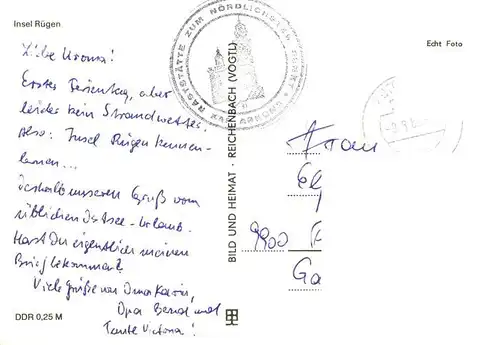 Insel Rügen
Echt Foto
RASTSTÄTTE ZUM NÖRDLICHSTEN
Liebe Uroma!
Erster Ferientag, aber
leider kein Strandwetter.
Also: Insel Rügen kennen-
lernen...
Deshalb unseren Gruß vom
üblichen Ostsee-Urlaub.
Hast Du eigentlich meinen
Brief bekommen?
Viele Grüße von Oma Karin,
Opa Bernd und
Tante Victoria!
DDR 0,25 M
BILD UND HEIMAT · REICHENBACH (VOGTL)
Frau
9900
Ga